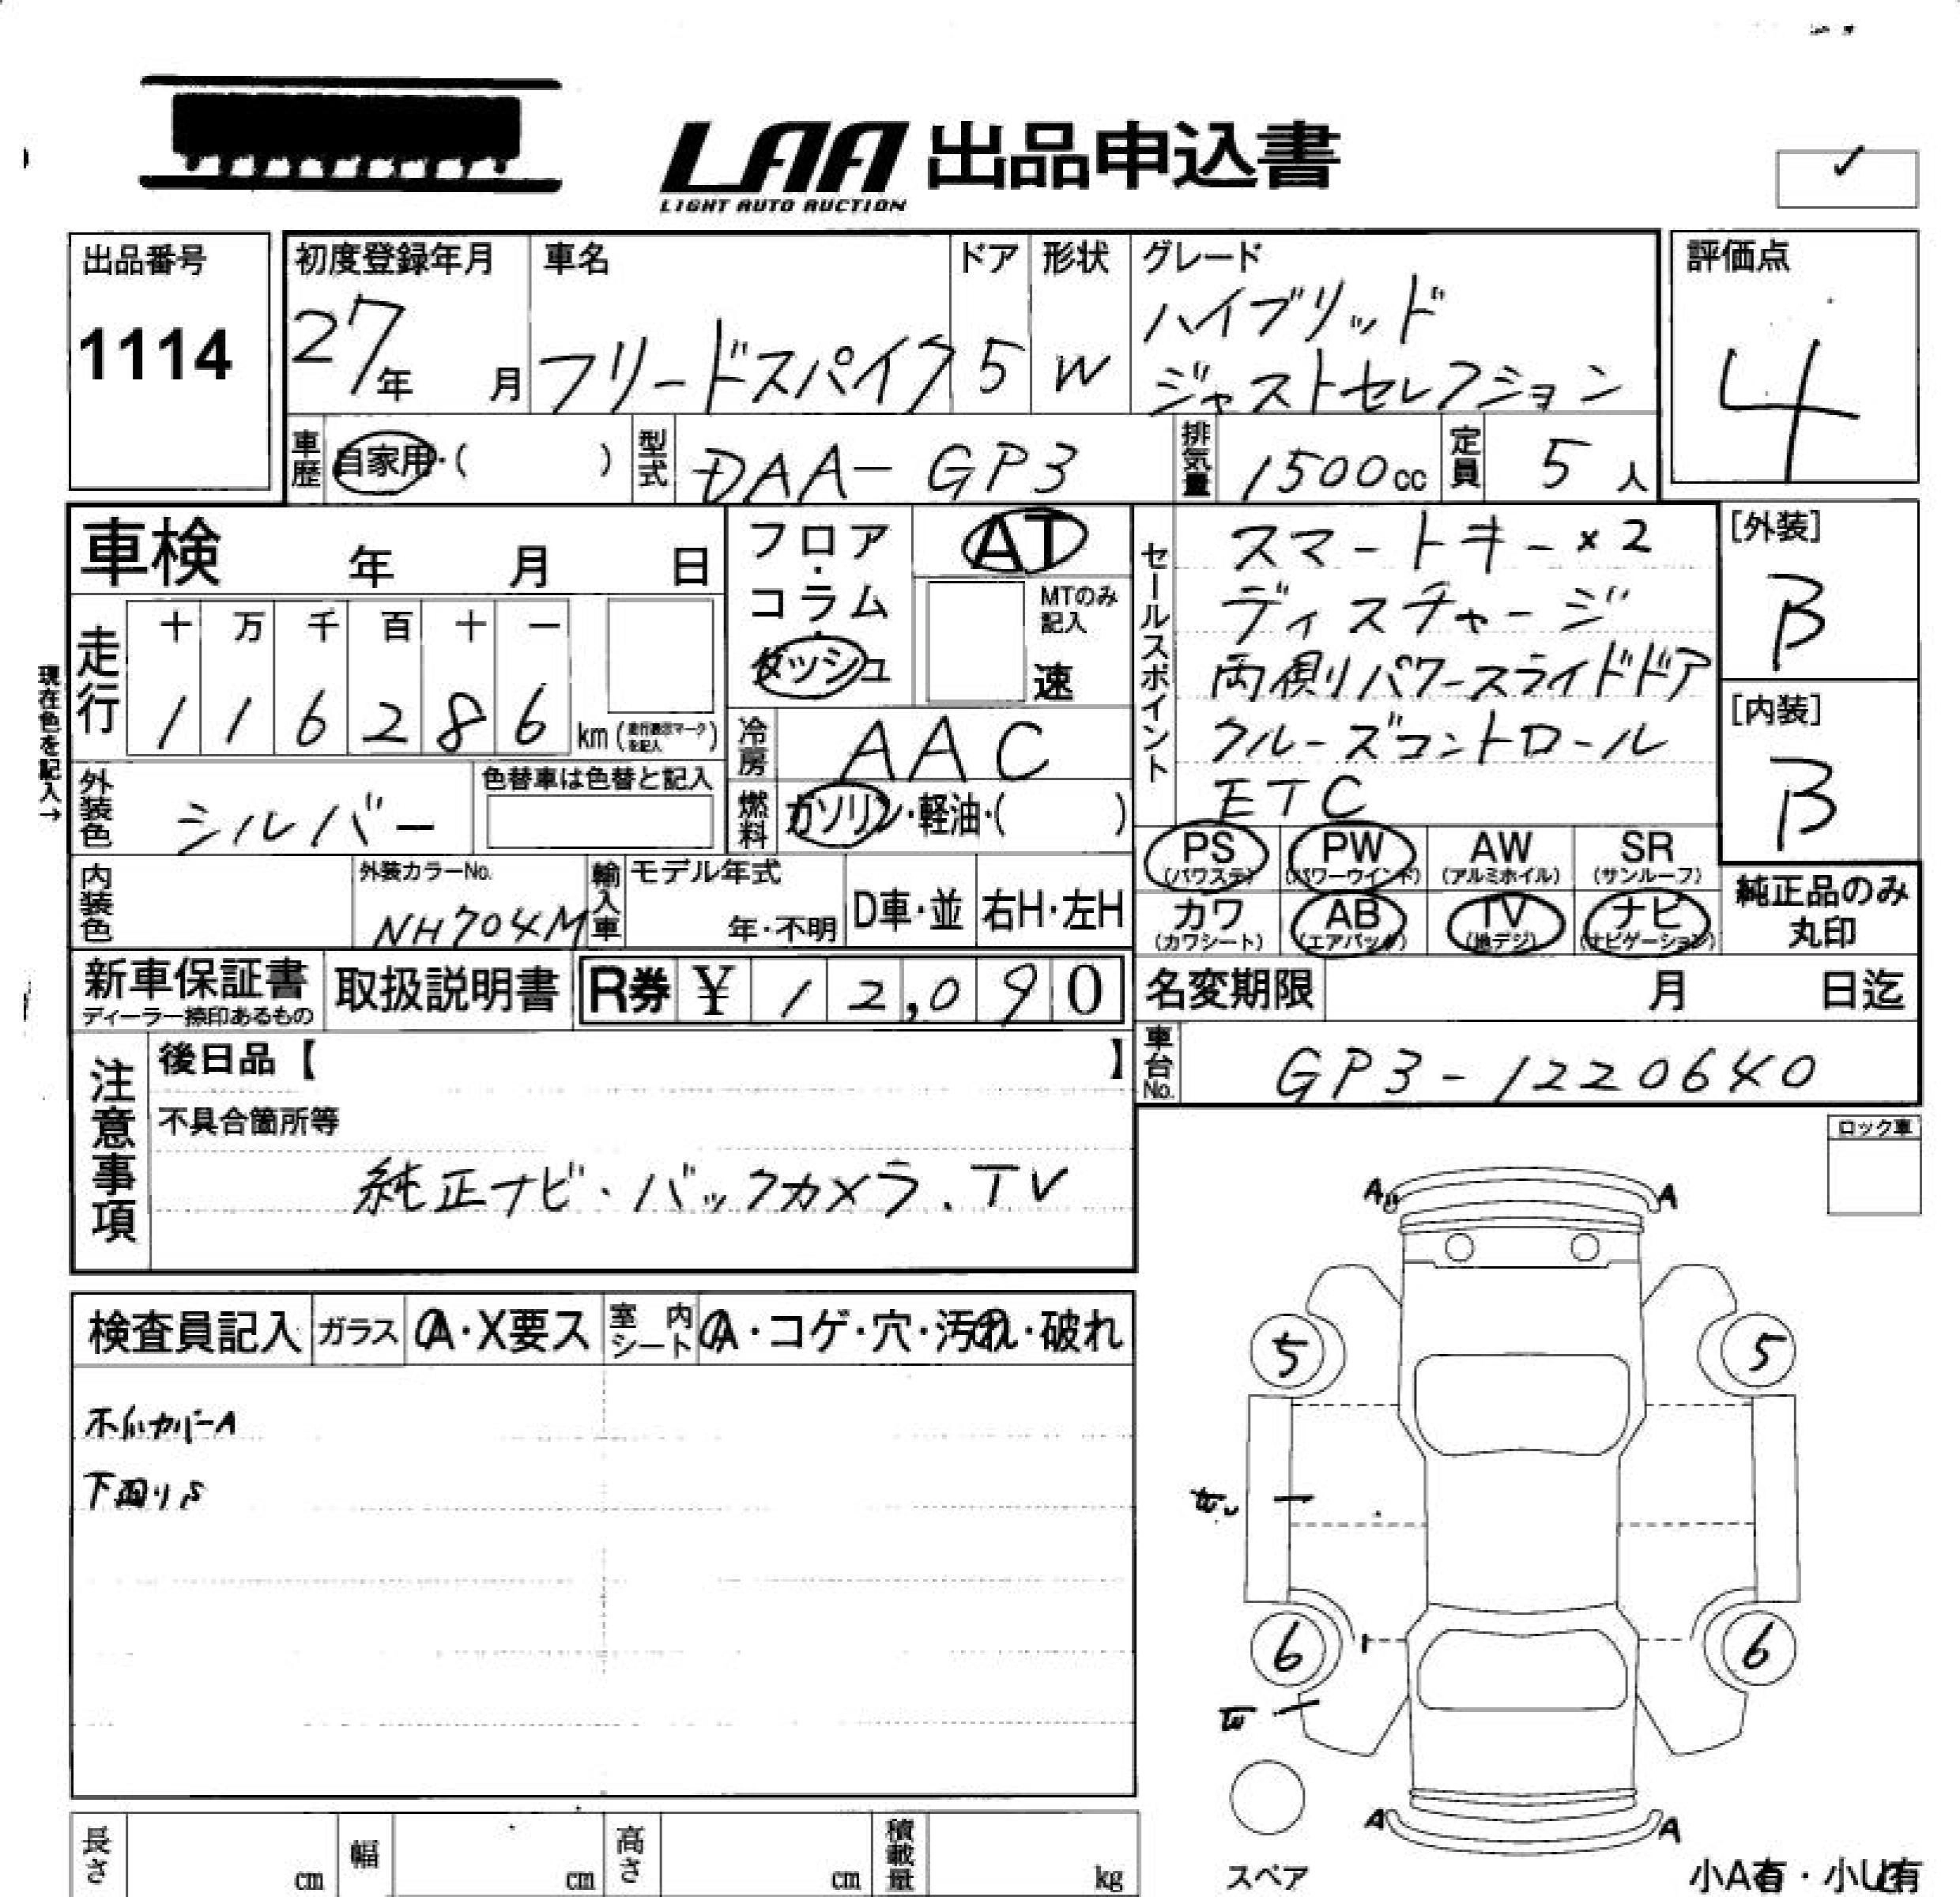 LAA 出品申込書
LIGHT AUTO AUCTION
出品番号
1114
初度登録年月
27年 月
車名
フリードスパイク
ドア
5
形状
W
グレード
ハイブリッド
ジャストセレクション
評価点
4
車歴
自家用・( )
型式
DAA-GP3
排気量
1500cc
定員
5人
車検 年 月 日
現在色を記入→
走行
十 万 千 百 十 一
1 1 6 2 8 6 km
フロア・コラム・ダッシュ
AT
MTのみ記入
速
冷房
AAC
燃料
ガソリン・軽油・( )
外装色
シルバー
色替車は色替と記入
内装色
外装カラーNo.
NH704M
輸入車
モデル年式
年・不明
D車・並
右H・左H
セールスポイント
スマートキー×2
ディスチャージ
両側パワースライドドア
クルーズコントロール
ETC
[外装]
B
[内装]
B
PS
(パワステ)
PW
(パワーウインド)
AW
(アルミホイル)
SR
(サンルーフ)
カワ
(カワシート)
AB
(エアバック)
TV
(地デジ)
ナビ
(ナビゲーション)
純正品のみ
丸印
新車保証書
ディーラー捺印あるもの
取扱説明書
R券 ¥ 12,090
名変期限 月 日迄
車台No.
GP3-1220640
注意事項
後日品【 】
不具合箇所等
純正ナビ・バックカメラ.TV
ロック車
検査員記入
ガラス
A・X要ス
室内シート
A・コゲ・穴・汚れ・破れ
ホイルカバーA
下回りS
A
A
5
5
6
6
A
A
スペア
小A有・小U有
長さ cm
幅 cm
高さ cm
積載量 kg